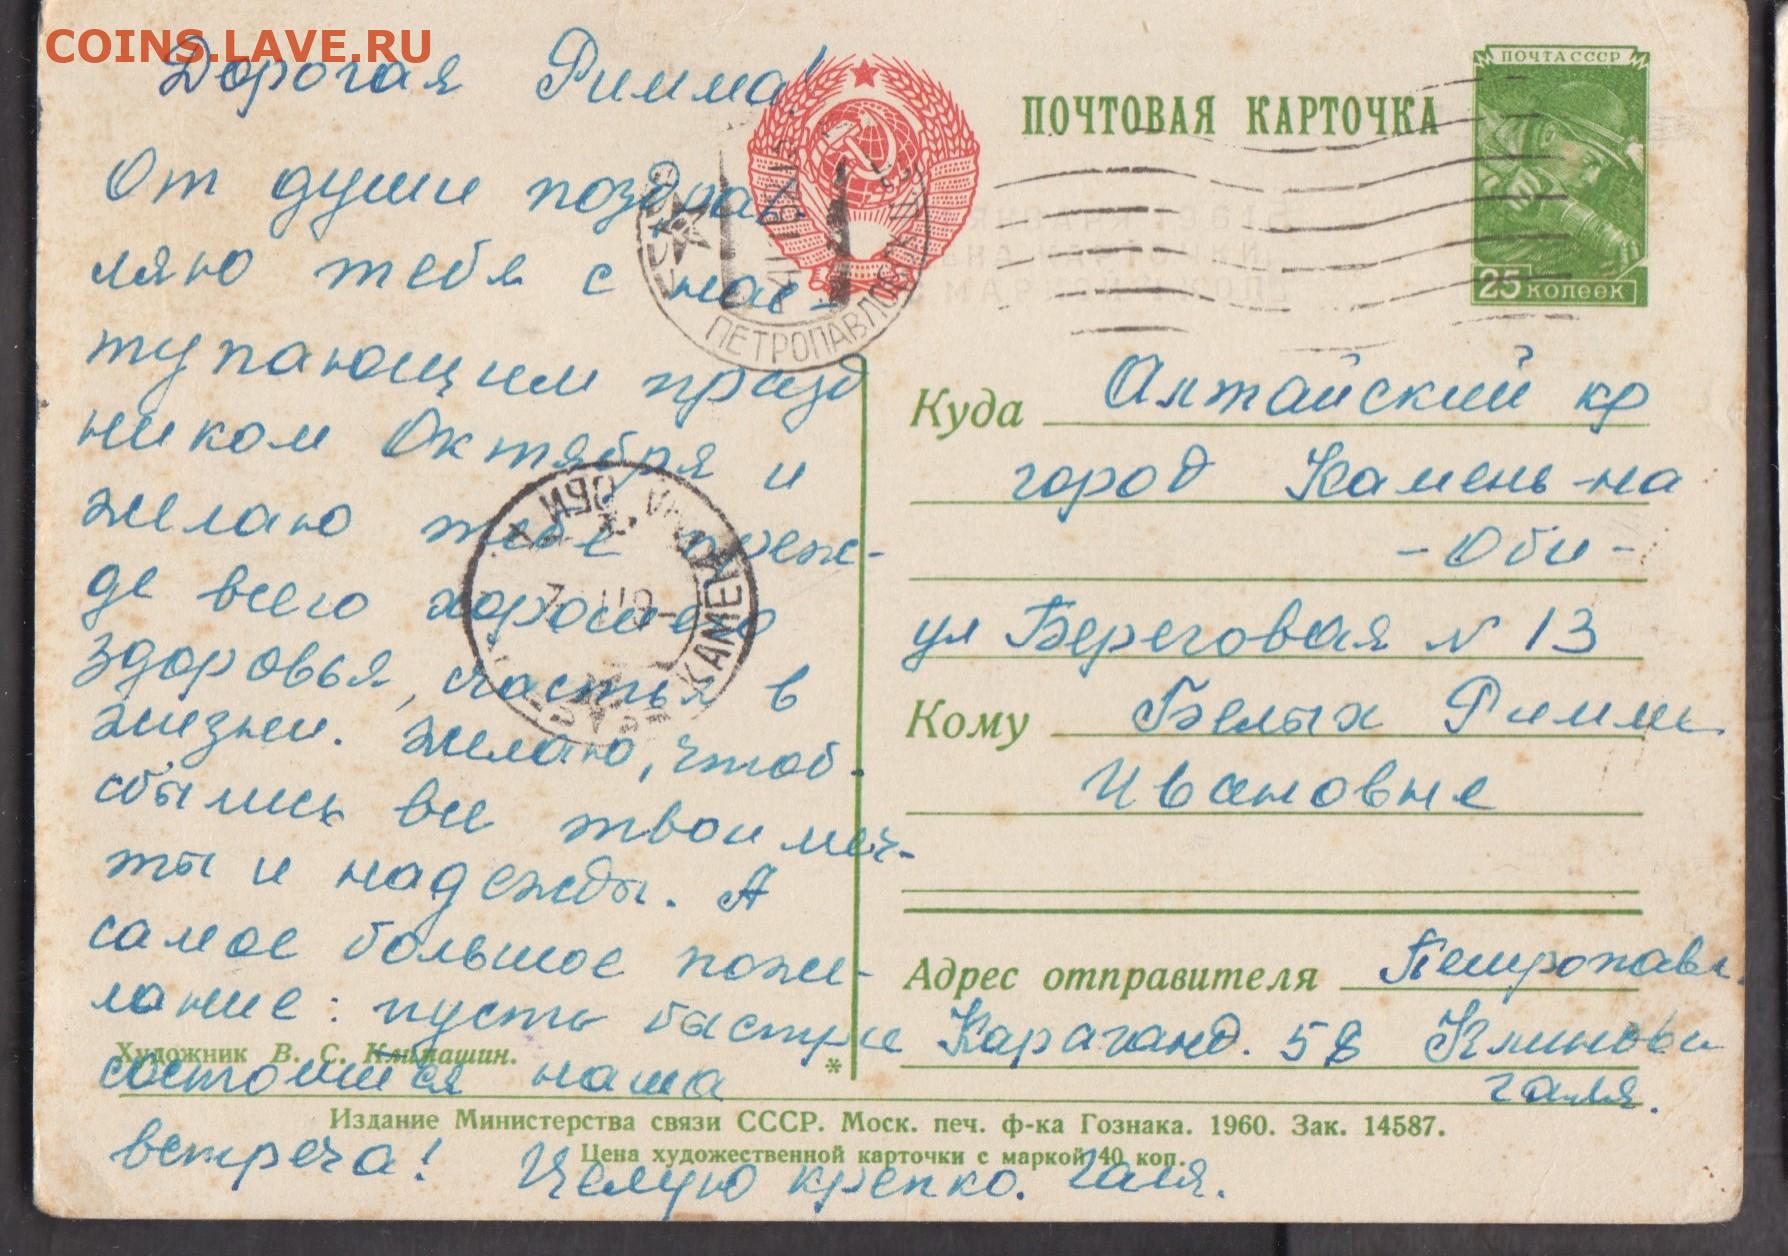 COINS.LAVE.RU
Дорогая Римма!
От души поздрав
ляю тебя с нас-
тупающим празд
ником Октября и
желаю тебе преж-
де всего хорошего
здоровья, счастья в
жизни. Желаю, чтоб
сбылись все твои меч-
ты и надежды. А
самое большое поже-
лание: пусть быстрее
состоится наша
встреча! Целую крепко. Галя.
Художник В. С. Климашин.
ПОЧТОВАЯ КАРТОЧКА
ПОЧТА СССР
25 КОПЕЕК
ПЕТРОПАВЛОВСК
КАМЕНЬ НА ОБИ
Куда Алтайский кр
город Камень-на
-Оби-
ул Береговая N 13
Кому Белых Римме
Ивановне
Адрес отправителя Петропавл.
Караганд. 58
Галя.
*
Издание Министерства связи СССР. Моск. печ. ф-ка Гознака. 1960. Зак. 14587.
Цена художественной карточки с маркой 40 коп.